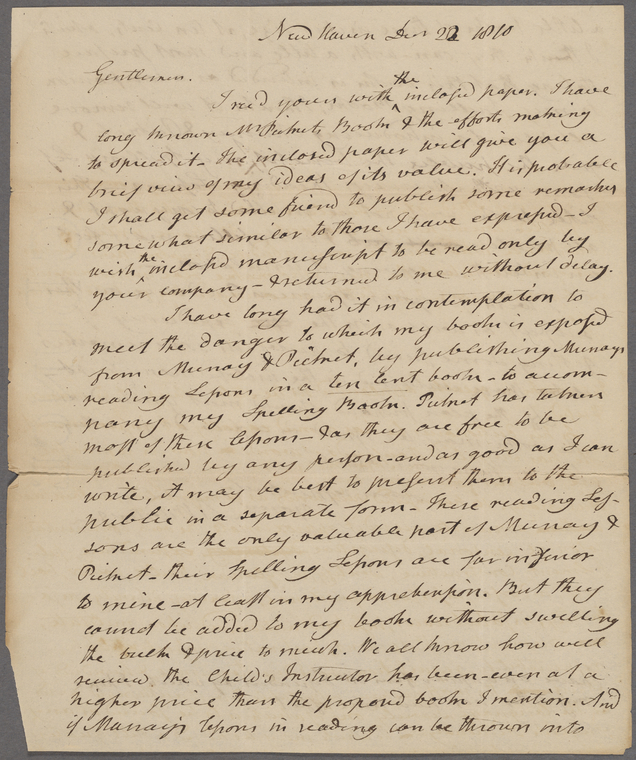 New Haven Decr 22 1810
Gentlemen.
I recd yours with the inclosed paper. I have
long known Mr Picket's Book & the efforts making
to spread it - The inclosed paper will give you a
brief view of my ideas of its value. It is probable
I shall get some friend to publish some remarks
somewhat similar to those I have expressed - I
wish the inclosed manuscript to be read only by
your company - & returned to me without delay.
I have long had it in contemplation to
meet the danger to which my book is exposed
from Murray & Picket, by publishing Murrays
reading Lessons in a ten cent book - to accom-
pany my Spelling Book. Picket has taken
most of these lessons - & as they are free to be
published by any person - and as good as I can
write, it may be best to present them to the
public in a separate form - These reading Les-
sons are the only valuable part of Murray &
Picket - their Spelling Lessons are far inferior
to mine - at least in my apprehension. But they
cannot be added to my book without swelling
the bulk & price to much. We all know how well
received the Child's Instructor has been - even at a
higher price than the proposed book I mention. And
if Murray's lessons in reading can be thrown into